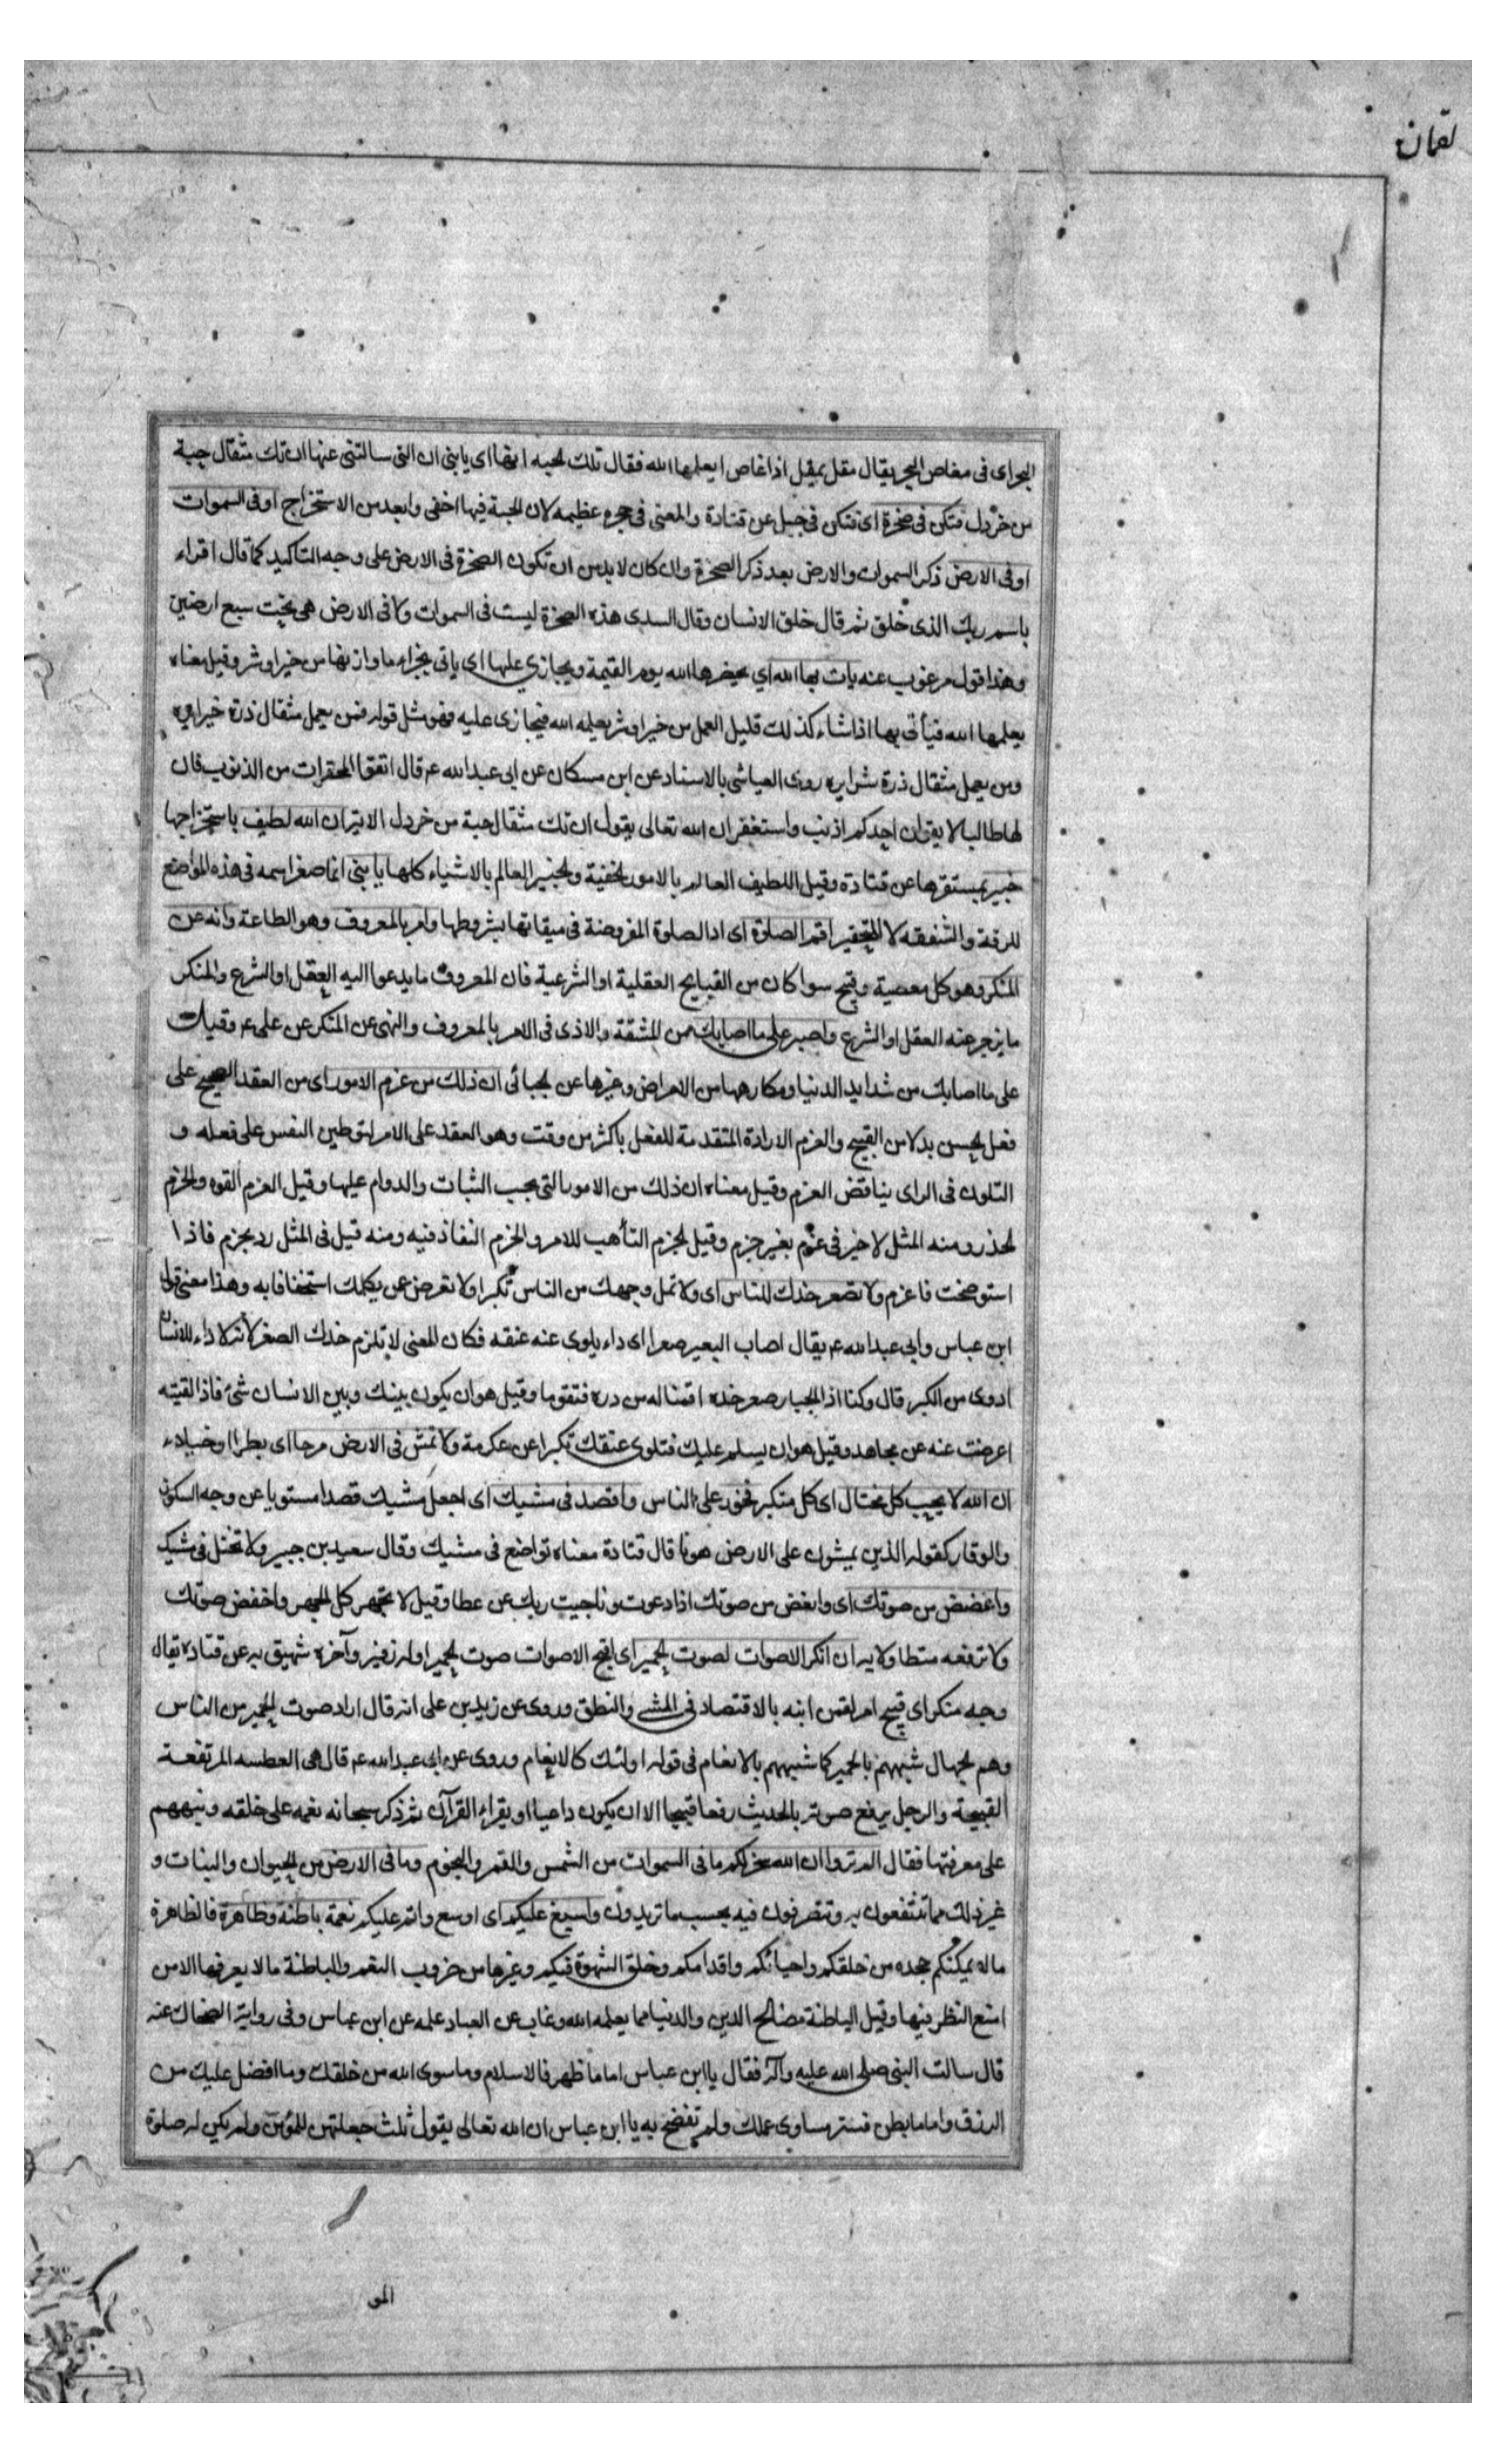 لقمان
البحر اى فى مغاص البحر يقال مقل يمقل اذا غاص ايعلمها الله فقال تلك الحبه انها اى يا بنى ان التى سالتنى عنها ان تك مثقال حبة
من خردل فتكن فى صخرة اى فتكن فى جبل عن قتادة والمعنى فى حجره عظيمه لان الحبة فيها اخفى وابعد من الاستخراج او فى السموات
او فى الارض ذكر السموات والارض بعد ذكر الصخرة وان كان لا بد من ان تكون الصخرة فى الارض على وجه التاكيد كما قال اقراء
باسم ربك الذى خلق ثم قال خلق الانسان وقال السدى هذه الصخرة ليست فى السموات ولا فى الارض هى تحت سبع ارضين
وهذا قول مرغوب عنه يات بها الله اي يحيضرها الله يوم القيمة ويجازي عليها اى ياتى بجزاء ما وازنها من خير او شر وقيل معناه
يعلمها الله فيأتى بها اذا شاء كذلك قليل العمل من خير او شر يعلمه الله فيجازى عليه فهو مثل قوله فمن يعمل مثقال ذرة خيرا يره
ومن يعمل مثقال ذرة شرا يره روى العياشى بالاسناد عن ابن مسكان عن ابى عبد الله ع قال اتقوا المحقرات من الذنوب فان
لها طالبا لا يقولن احدكم اذنب واستغفر ان الله تعالى يقول ان تك مثقال حبة من خردل الايتر ان الله لطيف باستخراجها
خبير بمستقرها عن قتادة وقيل اللطيف العالم بالامور الخفية والخبير العالم بالاشياء كلها يا بنى انما صغر اسمه فى هذه المواضع
للرقة والشفقه لا للتحقير اقم الصلوة اى اد الصلوة المفروضة فى ميقاتها بشروطها وامر بالمعروف وهو الطاعة وانه عن
المنكر وهو كل معصية وقبح سوا كان من القبايح العقلية او الشرعية فان المعروف ما يدعوا اليه العقل او الشرع والمنكر
ما يزجر عنه العقل او الشرع واصبر على ما اصابك من المشقة والاذى فى الامر بالمعروف والنهى عن المنكر عن على ع وقيل
على ما اصابك من شدايد الدنيا ومكارهها من الامراض وغيرها عن الجبائى ان ذلك من عزم الامور اى من العقد الصحيح على
فعل الحسن بدلا من القبيح والعزم الارادة المتقدمة للفعل باكثر من وقت وهو العقد على الامر لتوطين النفس على فعله و
التلون فى الراى يناقض العزم وقيل معناه ان ذلك من الامور التى يجب الثبات والدوام عليها وقيل العزم القوه والحزم
الحذر ومنه المثل لا خير فى عزم بغير حزم وقيل الحزم التأهب للامر والحزم النفاذ فيه ومنه قيل فى المثل رو بحزم فاذا
استوضحت فاعزم ولا تصعر خدك للناس اى ولا تمل وجهك من الناس تكبرا ولا تعرض عن يكلمك استخفافا به وهذا معنى قول
ابن عباس وابى عبد الله ع يقال اصاب البعير صعر اى داء يلوى عنه عنقه فكان المعنى لا تلزم خدك الصعر لانه لا داء للانسان
ادوى من الكبر قال وكنا اذا الجبار صعر خده اقمنا له من درءه فتقوما وقيل هو ان يكون بينك وبين الانسان شئ فاذا لقيته
اعرضت عنه عن مجاهد وقيل هو ان يسلم عليك فتلوى عنقك تكبرا عن عكرمة ولا تمش فى الارض مرحا اى بطرا وخيلاء
ان الله لا يحب كل مختال اى كل متكبر فخور على الناس واقصد فى مشيك اى اجعل مشيك قصدا مستويا عن وجه السكون
والوقار كقوله الذين يمشون على الارض هونا قال قتادة معناه تواضع فى مشيك وقال سعيد بن جبير ولا تختل فى مشيك
واغضض من صوتك اى وانقض من صوتك اذا دعوت وناجيت ربك عن عطا وقيل لا تجهر كل الجهر واخفض صوتك
ولا ترفعه متطاولا به ان انكر الاصوات لصوت الحمير اى اقبح الاصوات صوت الحمير اوله زفير وآخره شهيق به عن قتادة يقال
وجه منكر اى قبيح امر لقمن ابنه بالاقتصاد فى المشى والنطق وروى عن زيد بن على انه قال اراد صوت الحمير من الناس
وهم الجهال شبههم بالحمير كما شبههم بالانعام فى قوله اولئك كالانعام وروى عن ابى عبد الله ع قال هى العطسه المرتفعة
القبيحة والرجل يرفع صوته بالحديث رفعا قبيحا الا ان يكون داعيا او يقراء القرآن ثم ذكر سبحانه نعمه على خلقه ونبههم
على معرفتها فقال الم تروا ان الله سخر لكم ما فى السموات من الشمس والقمر والنجوم وما فى الارض من الحيوان والنبات و
غير ذلك مما تنتفعون به وتتصرفون فيه بحسب ما تريدون واسبغ عليكم اى اوسع واتم عليكم نعمة باطنة وظاهرة فالظاهرة
ما لا يمكنكم جحده من خلقكم واحيائكم واقدامكم وخلق الشهوة فيكم وغيرها من ضروب النعم والباطنة ما لا يعرفها الا من
امتع النظر فيها وقيل الباطنة مصالح الدين والدنيا مما يعلمه الله وغاب عن العباد علمه عن ابن عباس وفى رواية الضحاك عنه
قال سالت النبى صلى الله عليه وآله فقال يا ابن عباس اما ما ظهر فالاسلام وما سوى الله من خلقك وما افضل عليك من
الرزق واما ما بطن فستر مساوى عملك ولم يفضحك به يا ابن عباس ان الله تعالى يقول ثلث جعلتهن للمؤمن ولم يكن له صلوة
المو